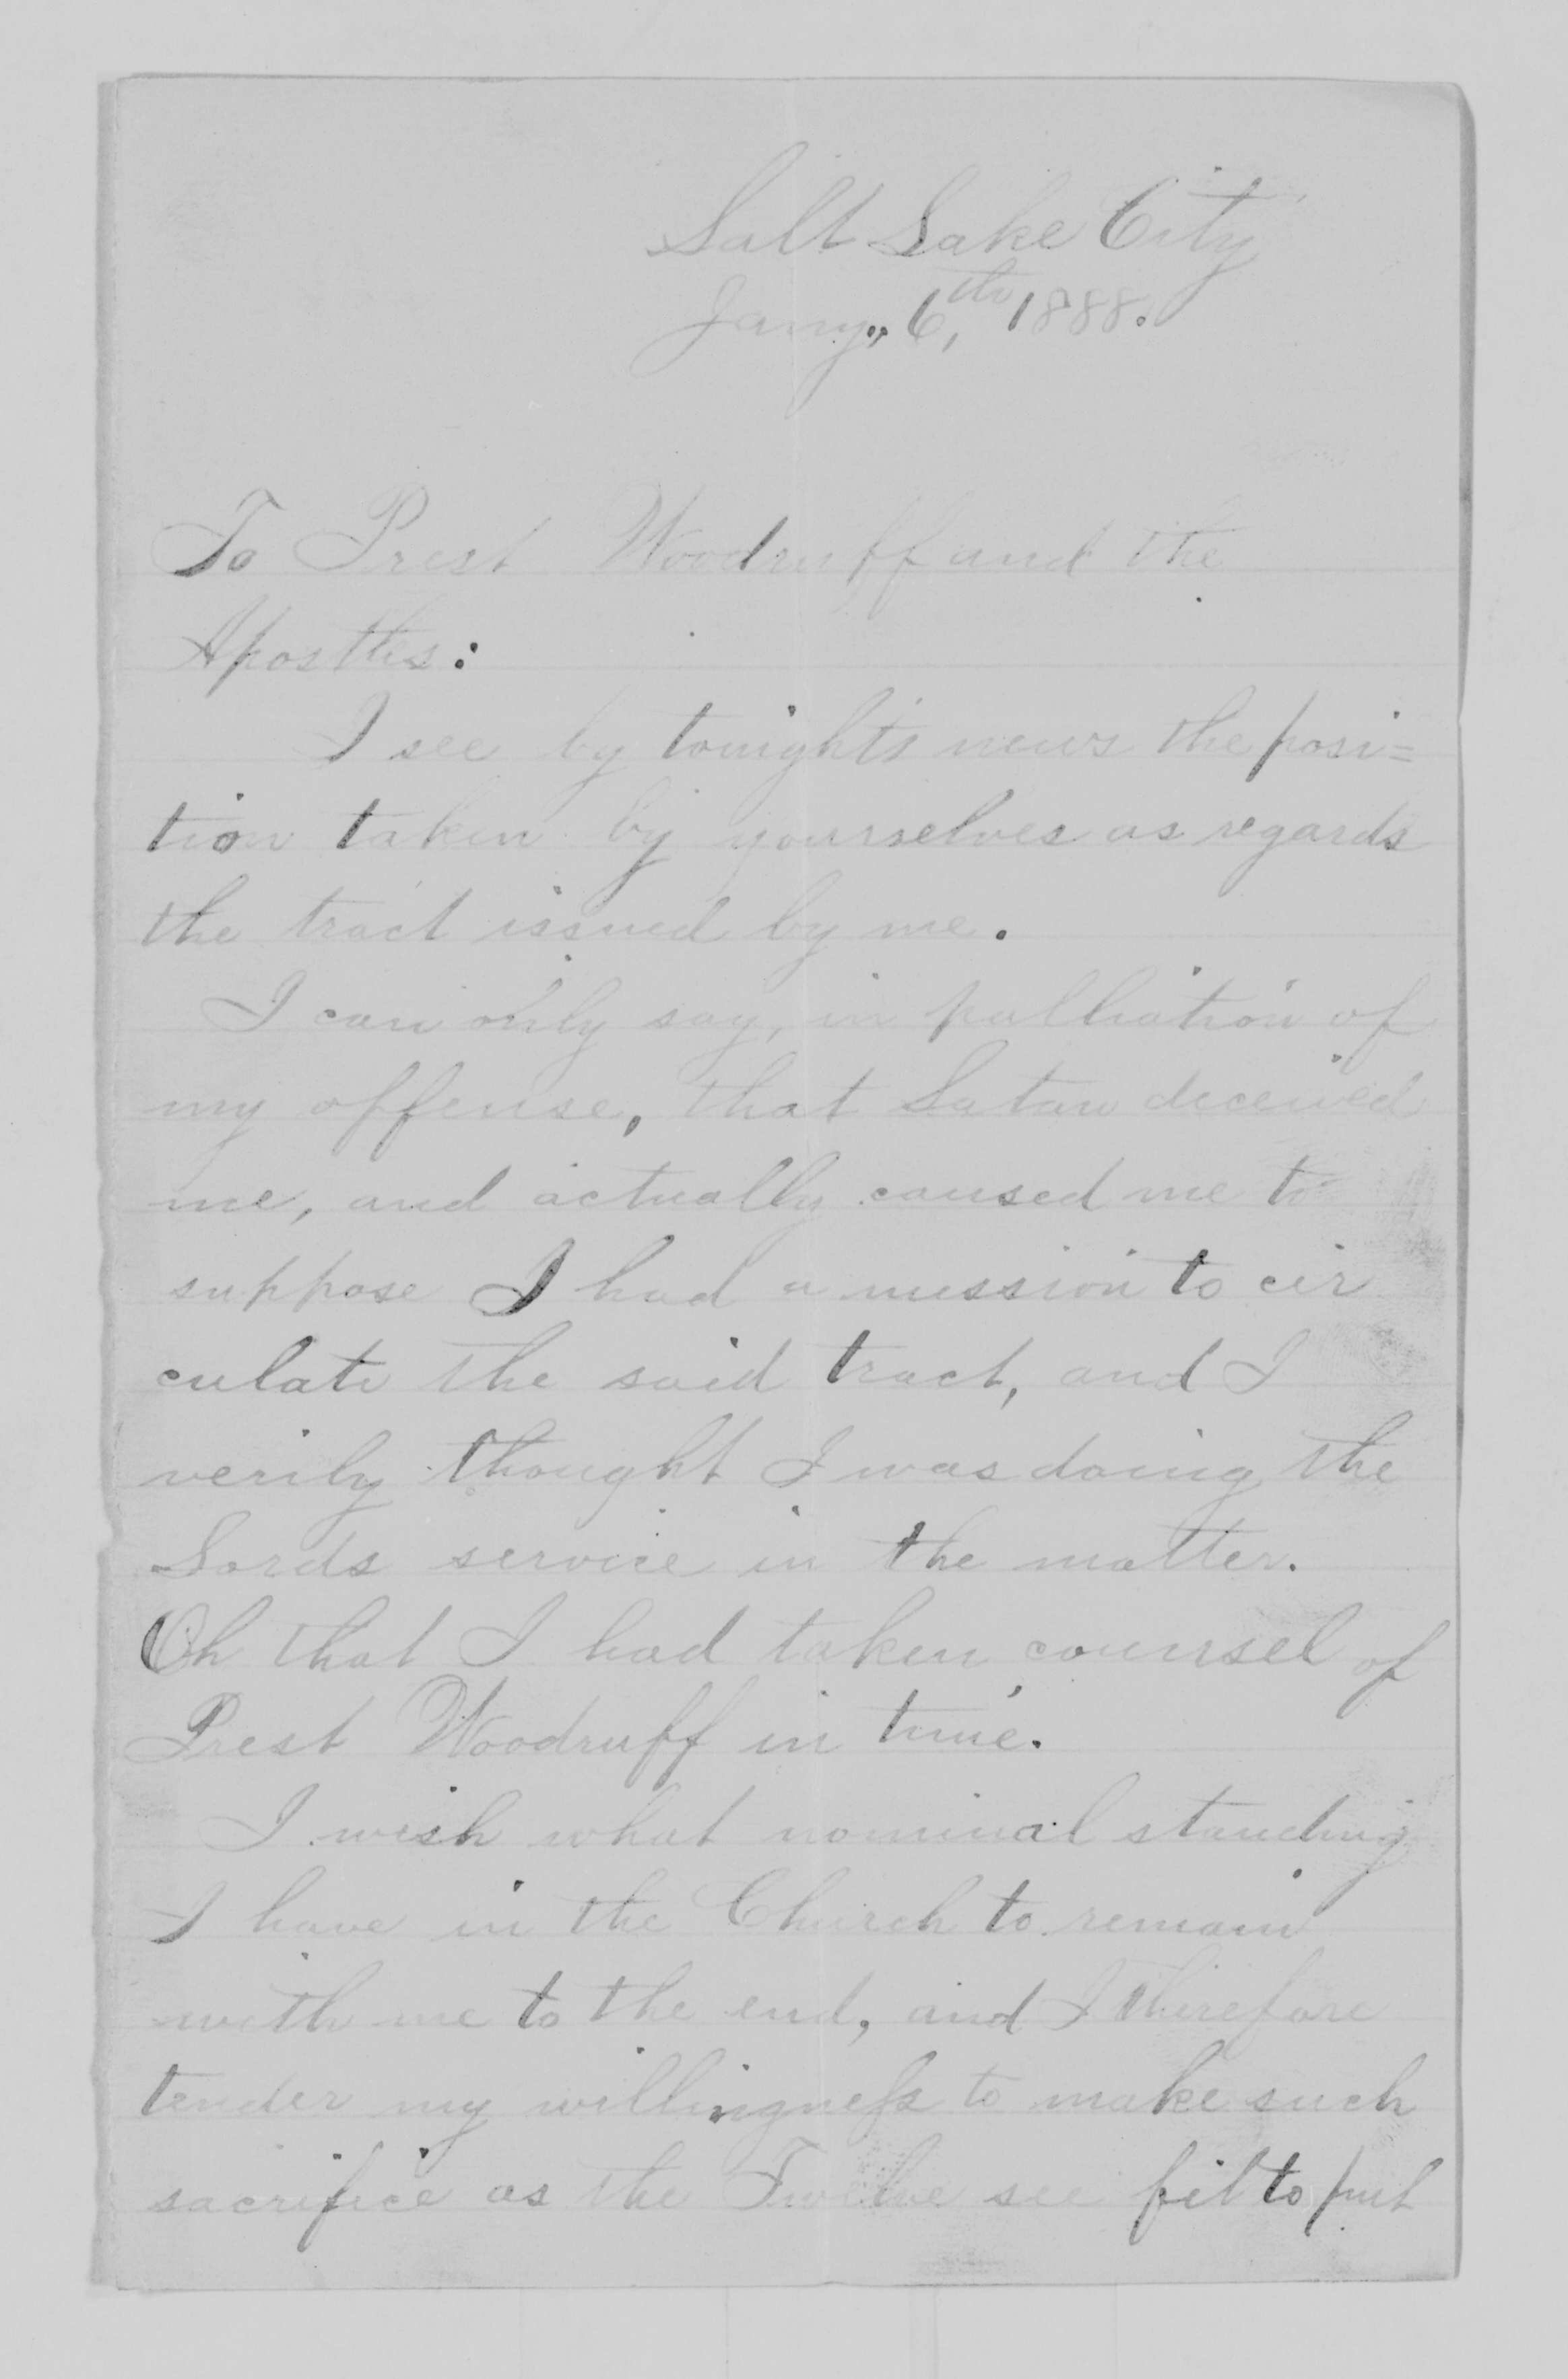 Salt Lake City
Jany., 6th, 1888.
To Prest Woodruff and the
Apostles:
I see by tonight's news the posi=
tion taken by yourselves as regards
the tract issued by me.
I can only say, in palliation of
my offense, that Satan deceived
me, and actually caused me to
suppose I had a mission to cir
culate the said tract, and I
verily thought I was doing the
Lords service in the matter.
Oh that I had taken counsel of
Prest Woodruff in time.
I wish what nominal standing
I have in the Church to remain
with me to the end, and I therefore
tender my willingness to make such
sacrifice as the Twelve see fit to put